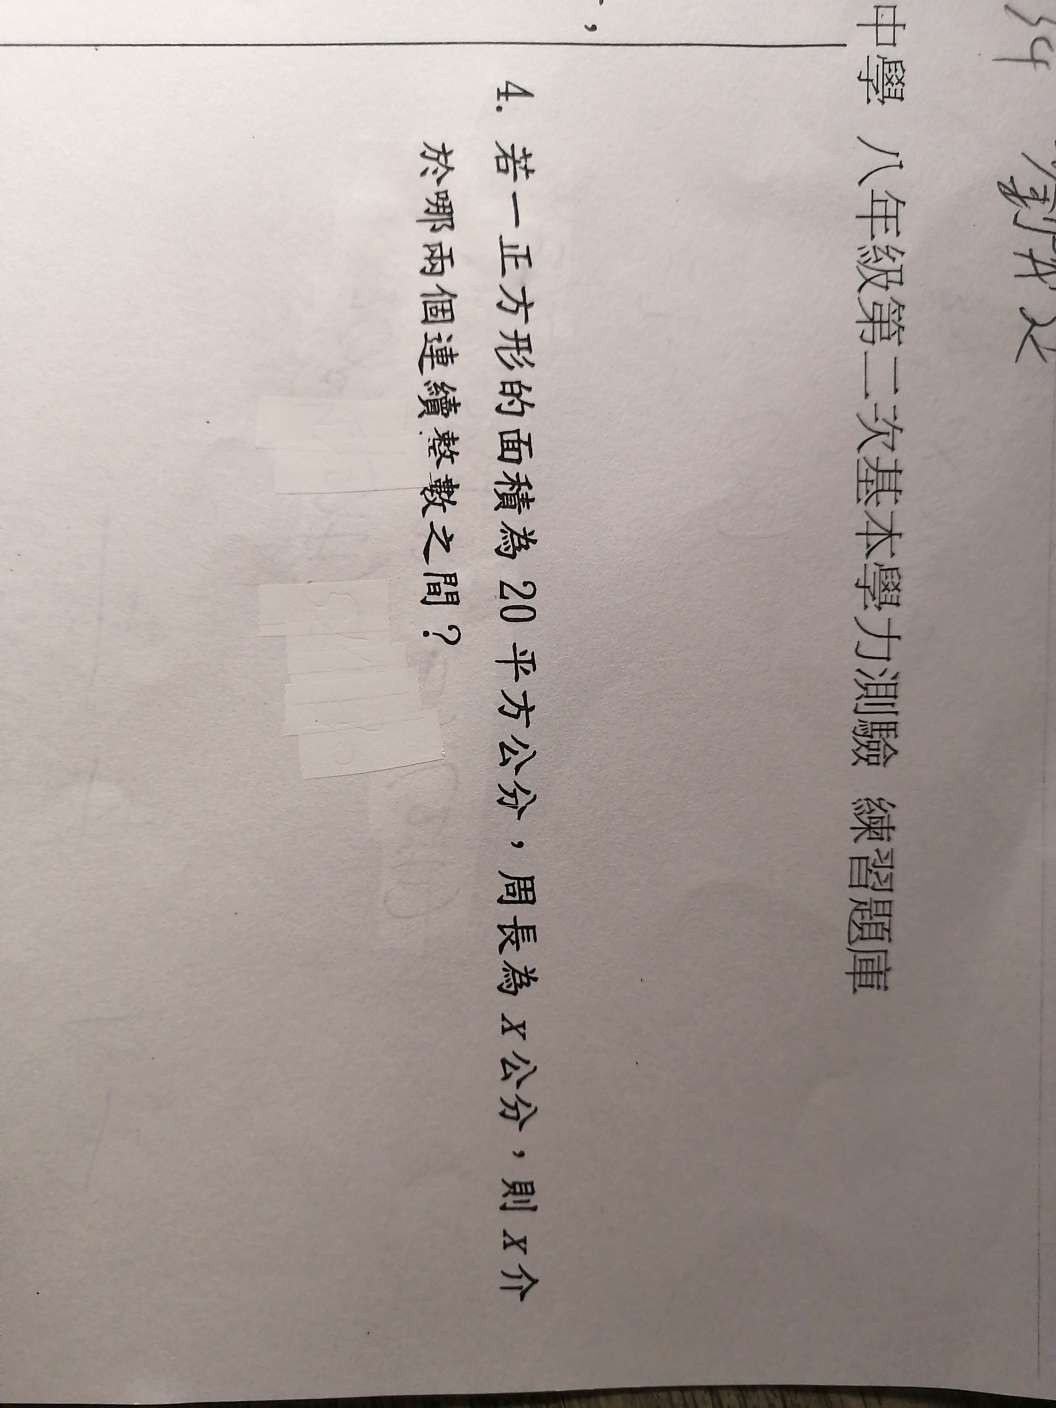 中學 八年級第二次基本學力測驗 練習題庫
4. 若一正方形的面積為 20 平方公分，周長為 X 公分，則 X 介
於哪兩個連續整數之間？